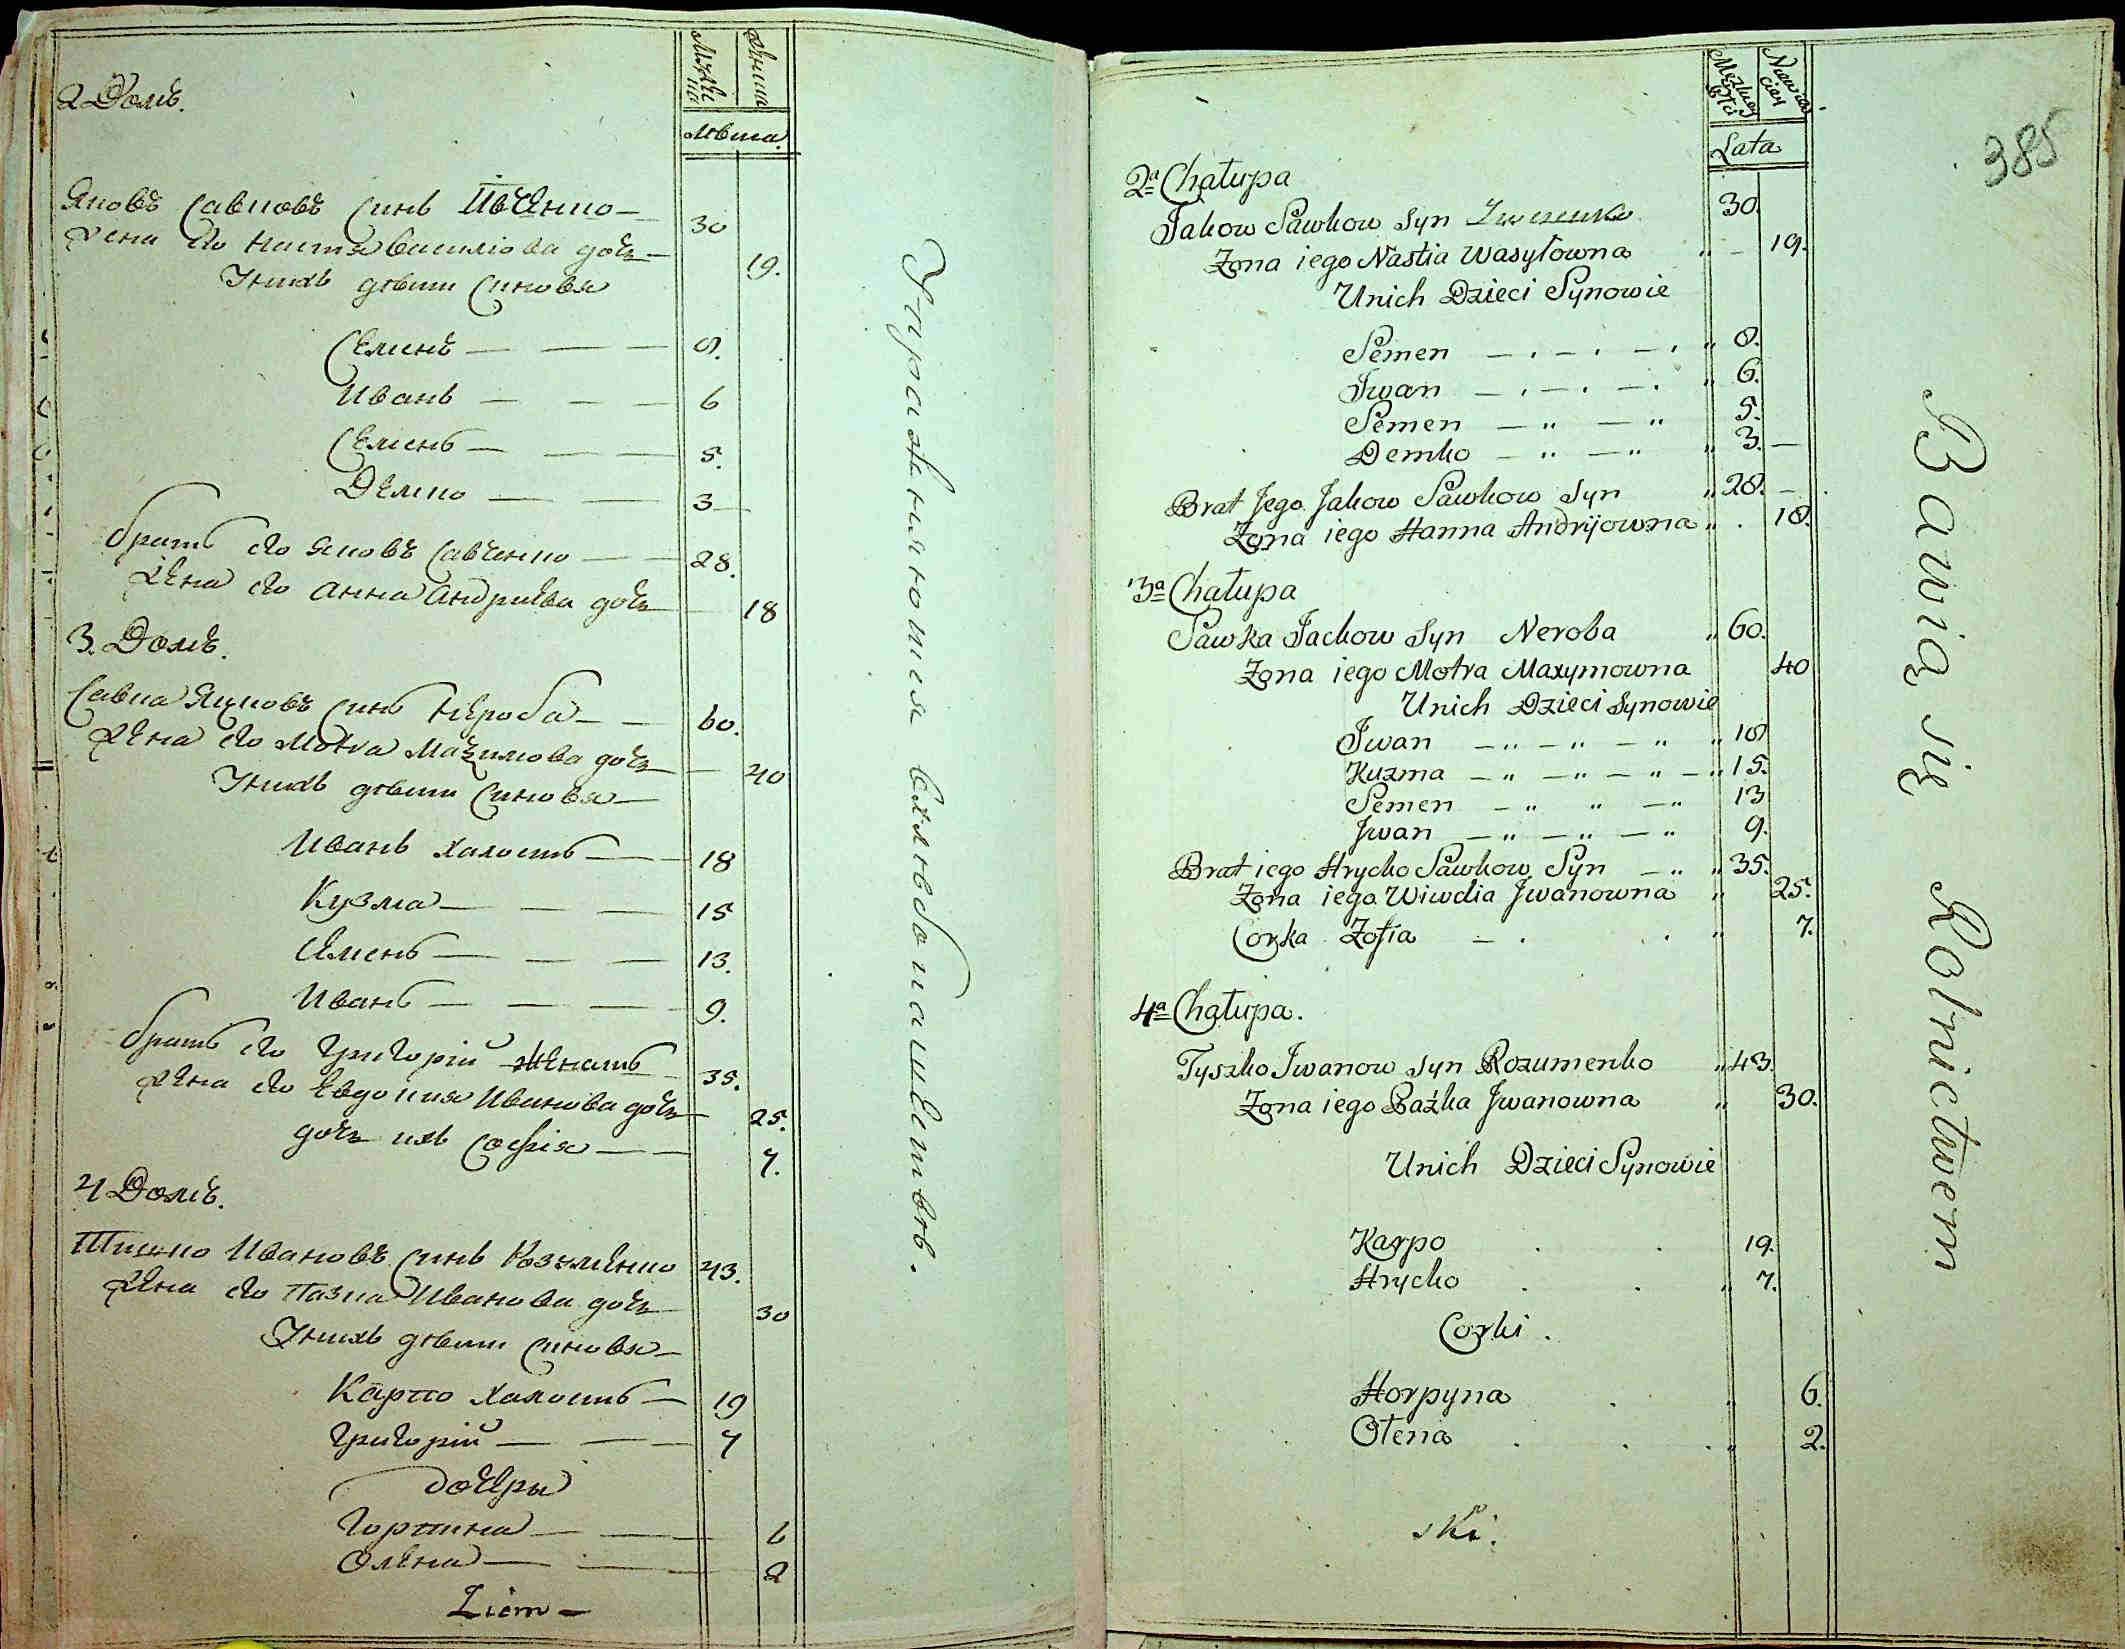 Мужеска
Женска
Лѣта.
2 Домъ.
Яковъ Савковъ Синъ Ивченко — 30
Жена его Настя Василіова дочь — 19.
У нихъ дѣти Синовя
Семенъ — — — 8.
Иванъ — — — 6
Семенъ — — — 5.
Демко — — 3 —
братъ его Яковъ Савченко — — 28.
Жена его Анна Андріева дочь — 18
3. Домъ.
Савка Яцковъ Синъ Нероба — — 60.
Жена его Мотра Максимова дочь — 40
У нихъ дѣти Синовя —
Иванъ холостъ — — 18
Кузма — — — 15
Семенъ — — — 13.
Иванъ — — — 9.
братъ его Григорій женатъ 35.
Жена его Евдокия Иванова дочь — 25.
дочь ихъ Софія — — 7.
4 Домъ.
Тишко Ивановъ Синъ Розуменко 43.
Жена его Пазка Иванова дочь — 30
У нихъ дѣти Синовя —
Карпо холостъ — 19
Григорій — — — 7
дочери
Горпина — — — 6
Олена — — 2
Ziem —
Упражняюшся въ хлѣбопашествѣ.
385
Lata
2ª Chałupa
Jakow Sawkow Syn Iwczenko 30.
Żona iego Nastia Wasyłowna „ — 19.
Unich Dzieci Synowie
Semen — . — . — . „ 8.
Jwan — . — . — . „ 6.
Semen — „ — „ 5.
Demko — „ — „ „ 3. —
Brat Jego Jakow Sawkow Syn „ 28. —
Żona iego Hanna Andrijowna „ . 18.
3ª Chałupa
Sawka Jackow Syn Neroba „ 60.
Żona iego Motra Maxymowna 40
Unich Dzieci Synowie
Jwan — „ — „ — „ „ 18
Kuzma — „ — „ — „ — „ 15.
Semen — „ „ — „ 13
Jwan — „ — „ — „ 9.
Brat iego Hrycko Sawkow Syn — „ „ 35.
Żona iego Wiwdia Jwanowna „ 25.
Corka Zofia — . . „ 7.
4ª Chałupa.
Tyszko Jwanow Syn Rozumenko „ 43.
Żona iego Paźka Jwanowna „ 30.
Unich Dzieci Synowie
Karpo . . 19.
Hrycko . . „ 7.
Corki .
Horpyna . „ 6.
Ołena . . . „ 2.
ski.
Bawią się Rolnictwem